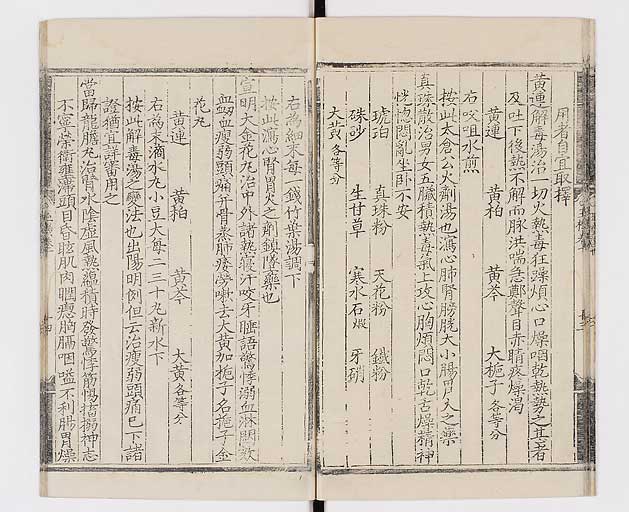 用者自宜取擇
黃連解毒湯治一切火熱毒狂躁煩心口燥咽乾熱勢之甚者
及吐下後熱不解而脉洪喘急鄭聲目赤睛疼燥渴
黃連 黃栢 黃芩 大梔子各等分
右㕮咀水煎
按此太倉公火劑湯也瀉心肺腎膀胱大小腸胃火之藥
真珠散治男女五臟積熱毒氣上攻心胸煩悶口乾舌燥精神
恍惚悶亂坐卧不安
琥珀 真珠粉 天花粉 鐵粉
硃砂 生甘草 寒水石煅 牙硝
大黃各等分
右爲細末每一錢竹葉湯調下
按此瀉心腎胃火之劑鎮墜藥也
宣明大金花丸治中外諸熱寢汗咬牙睡語驚悸溺血淋閉欬
血衂血瘦弱頭痛并骨蒸肺痿勞嗽去大黃加梔子名梔子金
花丸
黃連 黃栢 黃芩 大黃各等分
右爲末滴水丸小豆大每二三十丸新水下
按此解毒湯之變法也出陽明例但云治瘦弱頭痛巳下諸
證猶宜詳審用之
當歸龍膽丸治腎水陰虛風熱蘊積時發驚悸筋惕搐搦神志
不寧榮衛壅滯頭目昏眩肌肉瞤瘛胸膈咽嗌不利腸胃燥